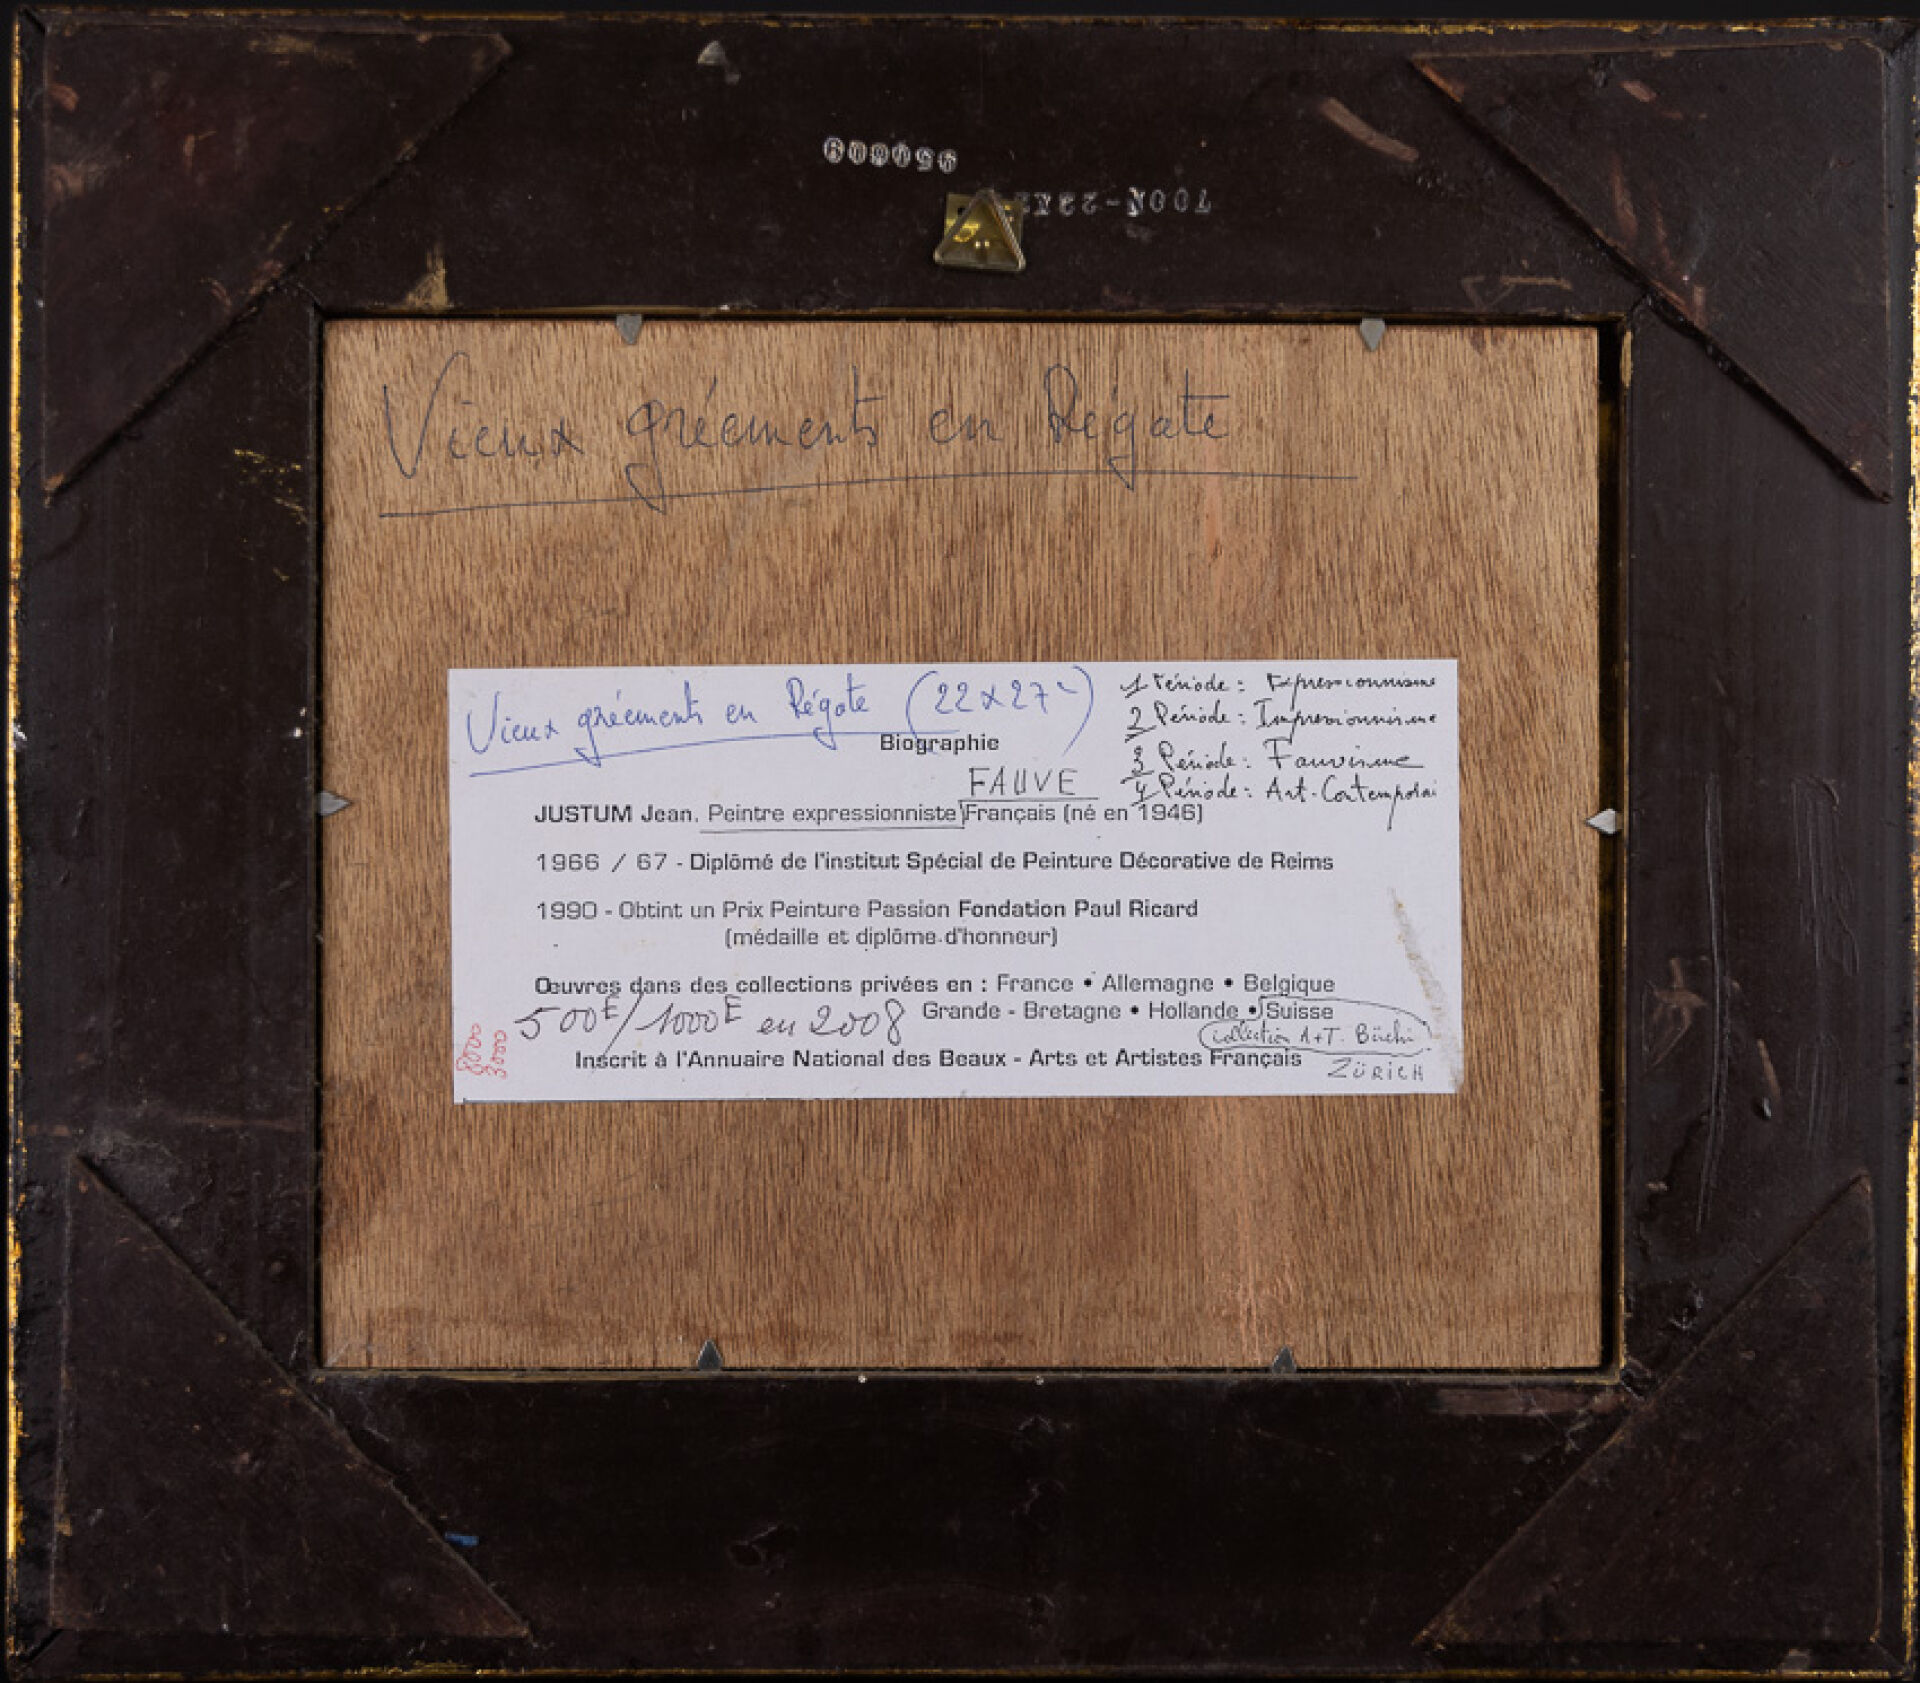 700N-22X2
Vieux gréements en Régate
Vieux gréements en Régate (22x27)
1 Période : Expressionnisme
2 Période : Impressionnisme
3 Période : Fauvisme
4 Période : Art-Contemporai
Biographie
FAUVE
JUSTUM Jean. Peintre expressionniste Français (né en 1946)
1966 / 67 - Diplômé de l'institut Spécial de Peinture Décorative de Reims
1990 - Obtint un Prix Peinture Passion Fondation Paul Ricard
(médaille et diplôme d'honneur)
Œuvres dans des collections privées en : France • Allemagne • Belgique
Grande - Bretagne • Hollande • Suisse
500E/1000E en 2008
collection A+T. Büchi
ZÜRICH
Inscrit à l'Annuaire National des Beaux - Arts et Artistes Français